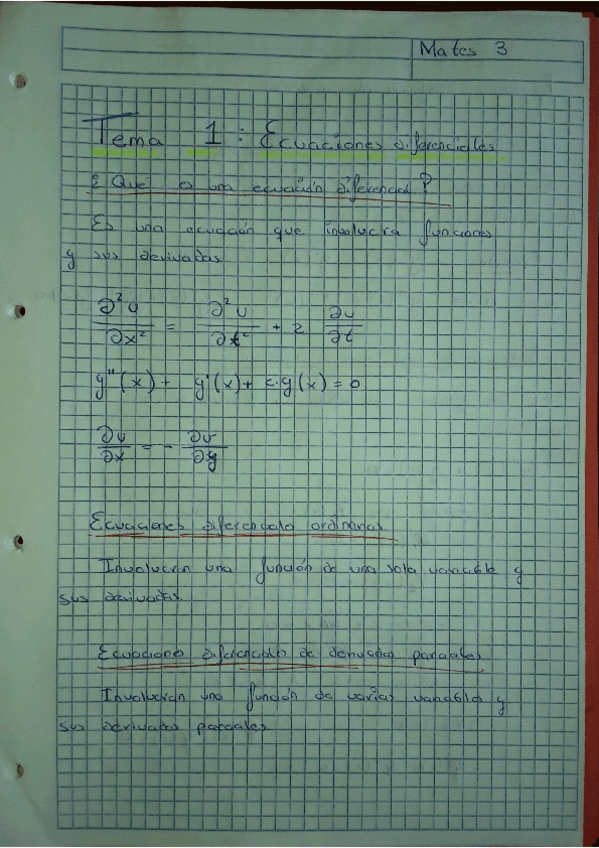 Mates 3
Tema 1: Ecuaciones diferenciales
¿Qué es una ecuación diferencial?
Es una ecuación que involucra funciones
y sus derivadas
∂²u/∂x² = ∂²u/∂t² + 2 ∂u/∂t
y''(x) + y'(x) + c·y(x) = 0
∂u/∂x = - ∂v/∂y
Ecuaciones diferenciales ordinarias
Involucran una función de una sola variable y
sus derivadas.
Ecuaciones diferenciales de derivadas parciales
Involucran una función de varias variables y
sus derivadas parciales.